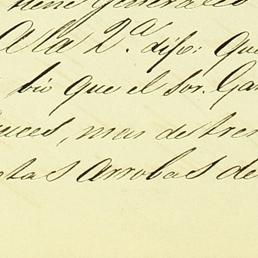 tiene Generales
A la 2ª. dijo: Que
bio que el sor. Gar
uces, mas de tre
tas arrobas de